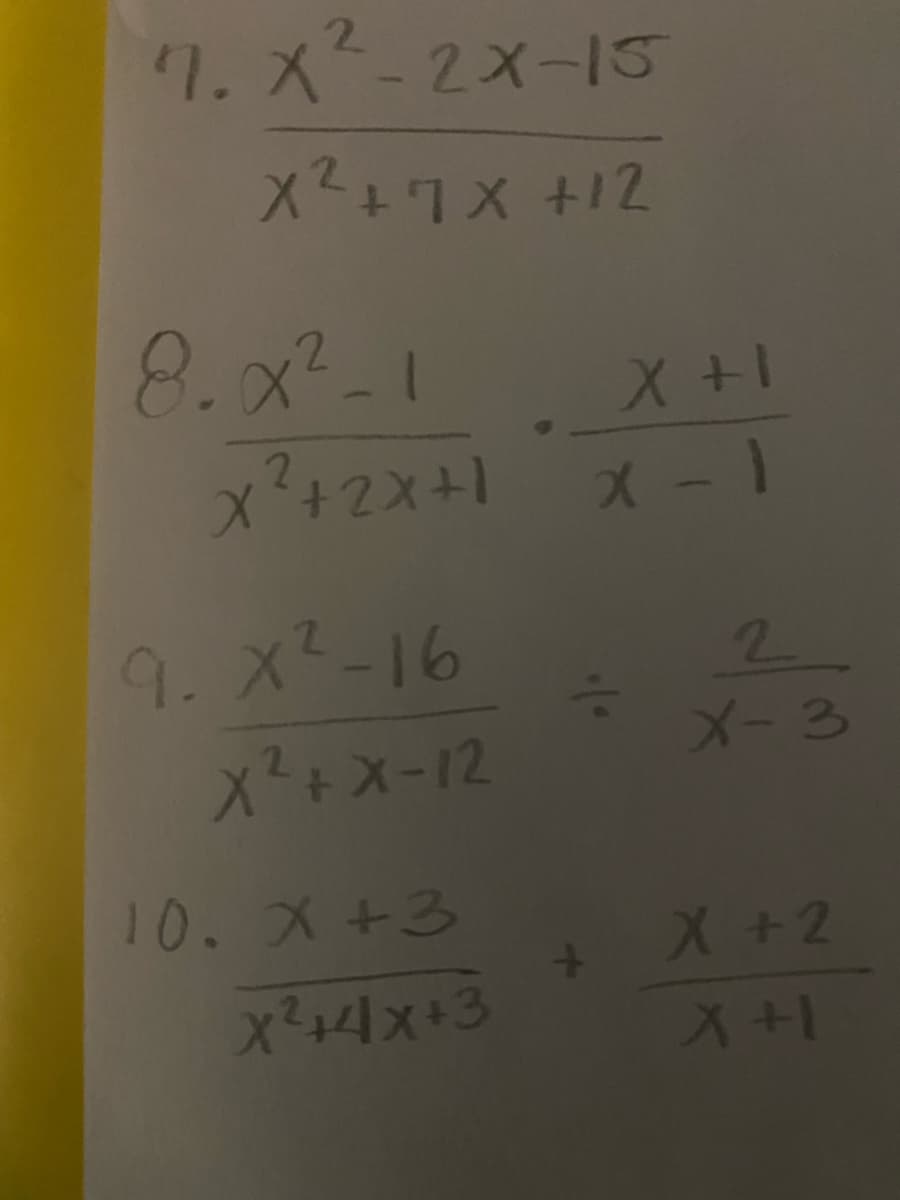 7. x² - 2x-15
x²+7x +12
8. x² - 1 · x +1
x²+2x+1 x - 1
9. x² -16 ÷ 2
x²+x-12 x- 3
10. x +3 + x +2
x²+4x+3 x +1